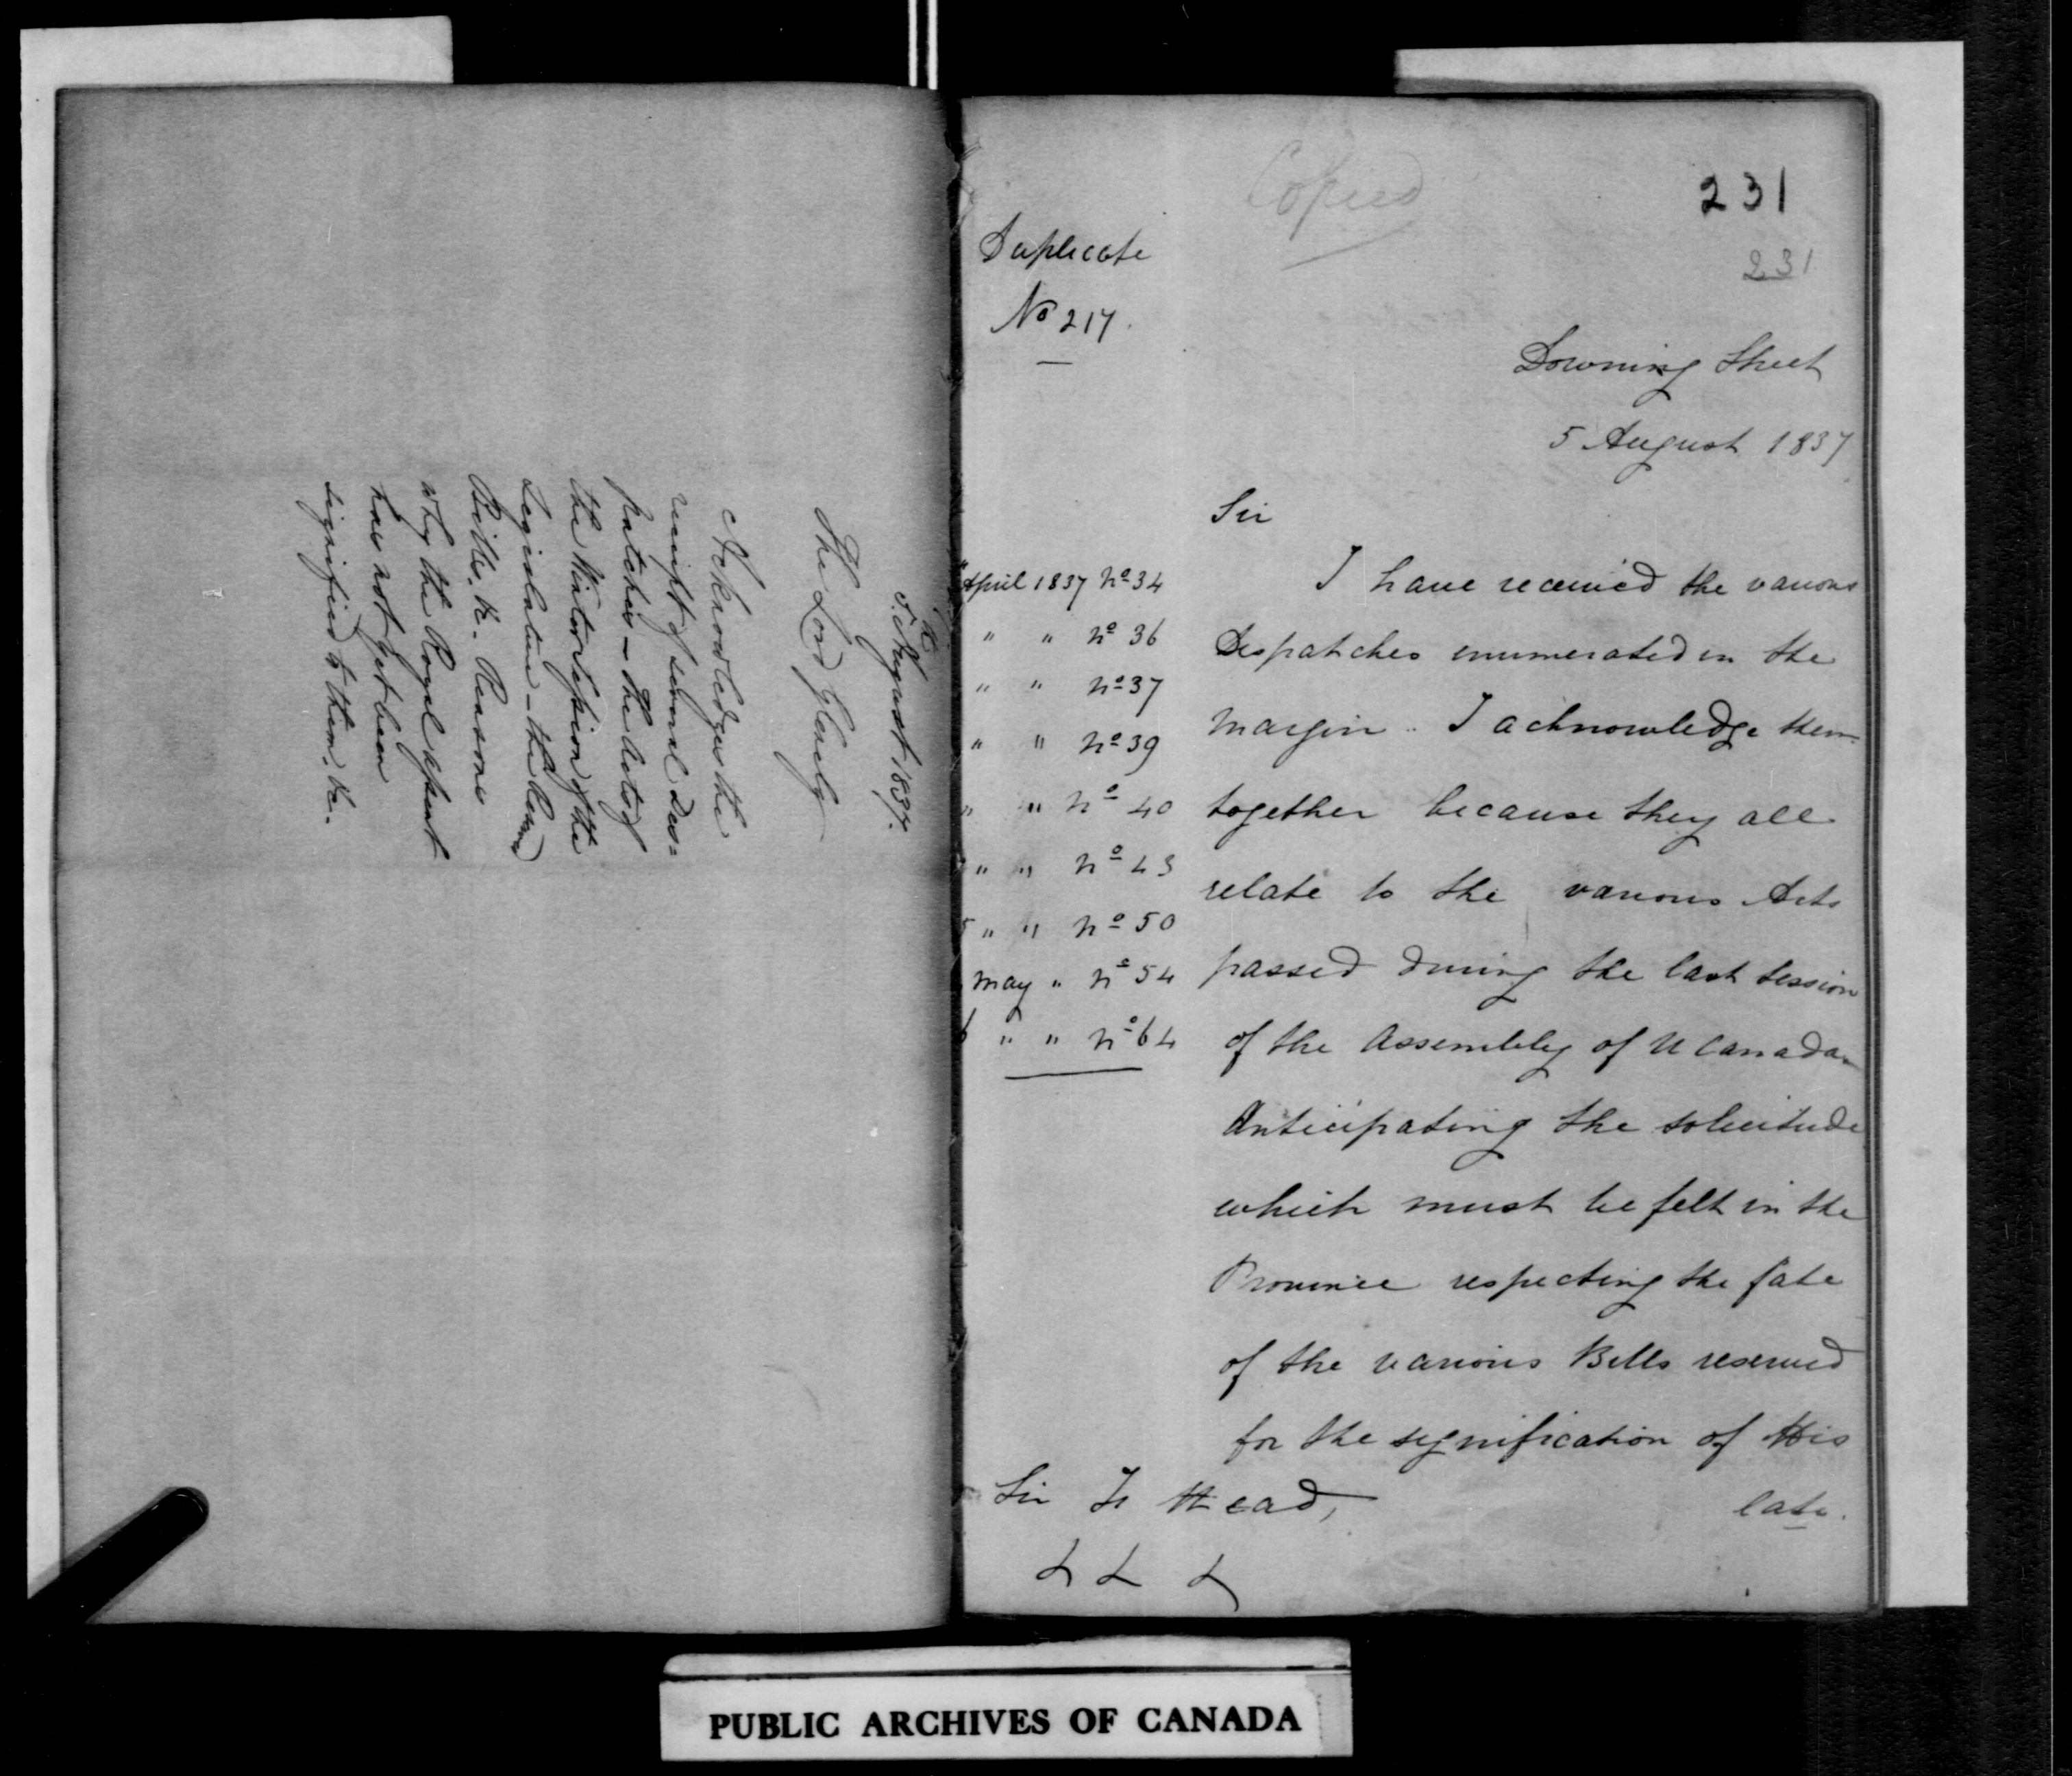 5th August 1837.
The Lord Glenelg
Acknowledges the
receipt of several Des=
patches – The Acts of
the Winter Session of the
Legislature – the Reserved
Bills, &c. Reasons
why the Royal assent
has not yet been
signified to them. &c.
Copied
231
231
Duplicate
No 217.
Downing Street
5 August 1837
Sir
April 1837 No 34
" " No 36
" " No 37
" " No 39
" " No 40
" " No 43
5 " " No 50
May " No 54
6 " " No 64
I have received the various
Despatches enumerated in the
margin. I acknowledge them
together because they all
relate to the various Acts
passed during the last session
of the Assembly of U Canada.
Anticipating the solicitude
which must be felt in the
Province respecting the fate
of the various Bills reserved
for the signification of His
late.
Sir F Head,
& & &
PUBLIC ARCHIVES OF CANADA